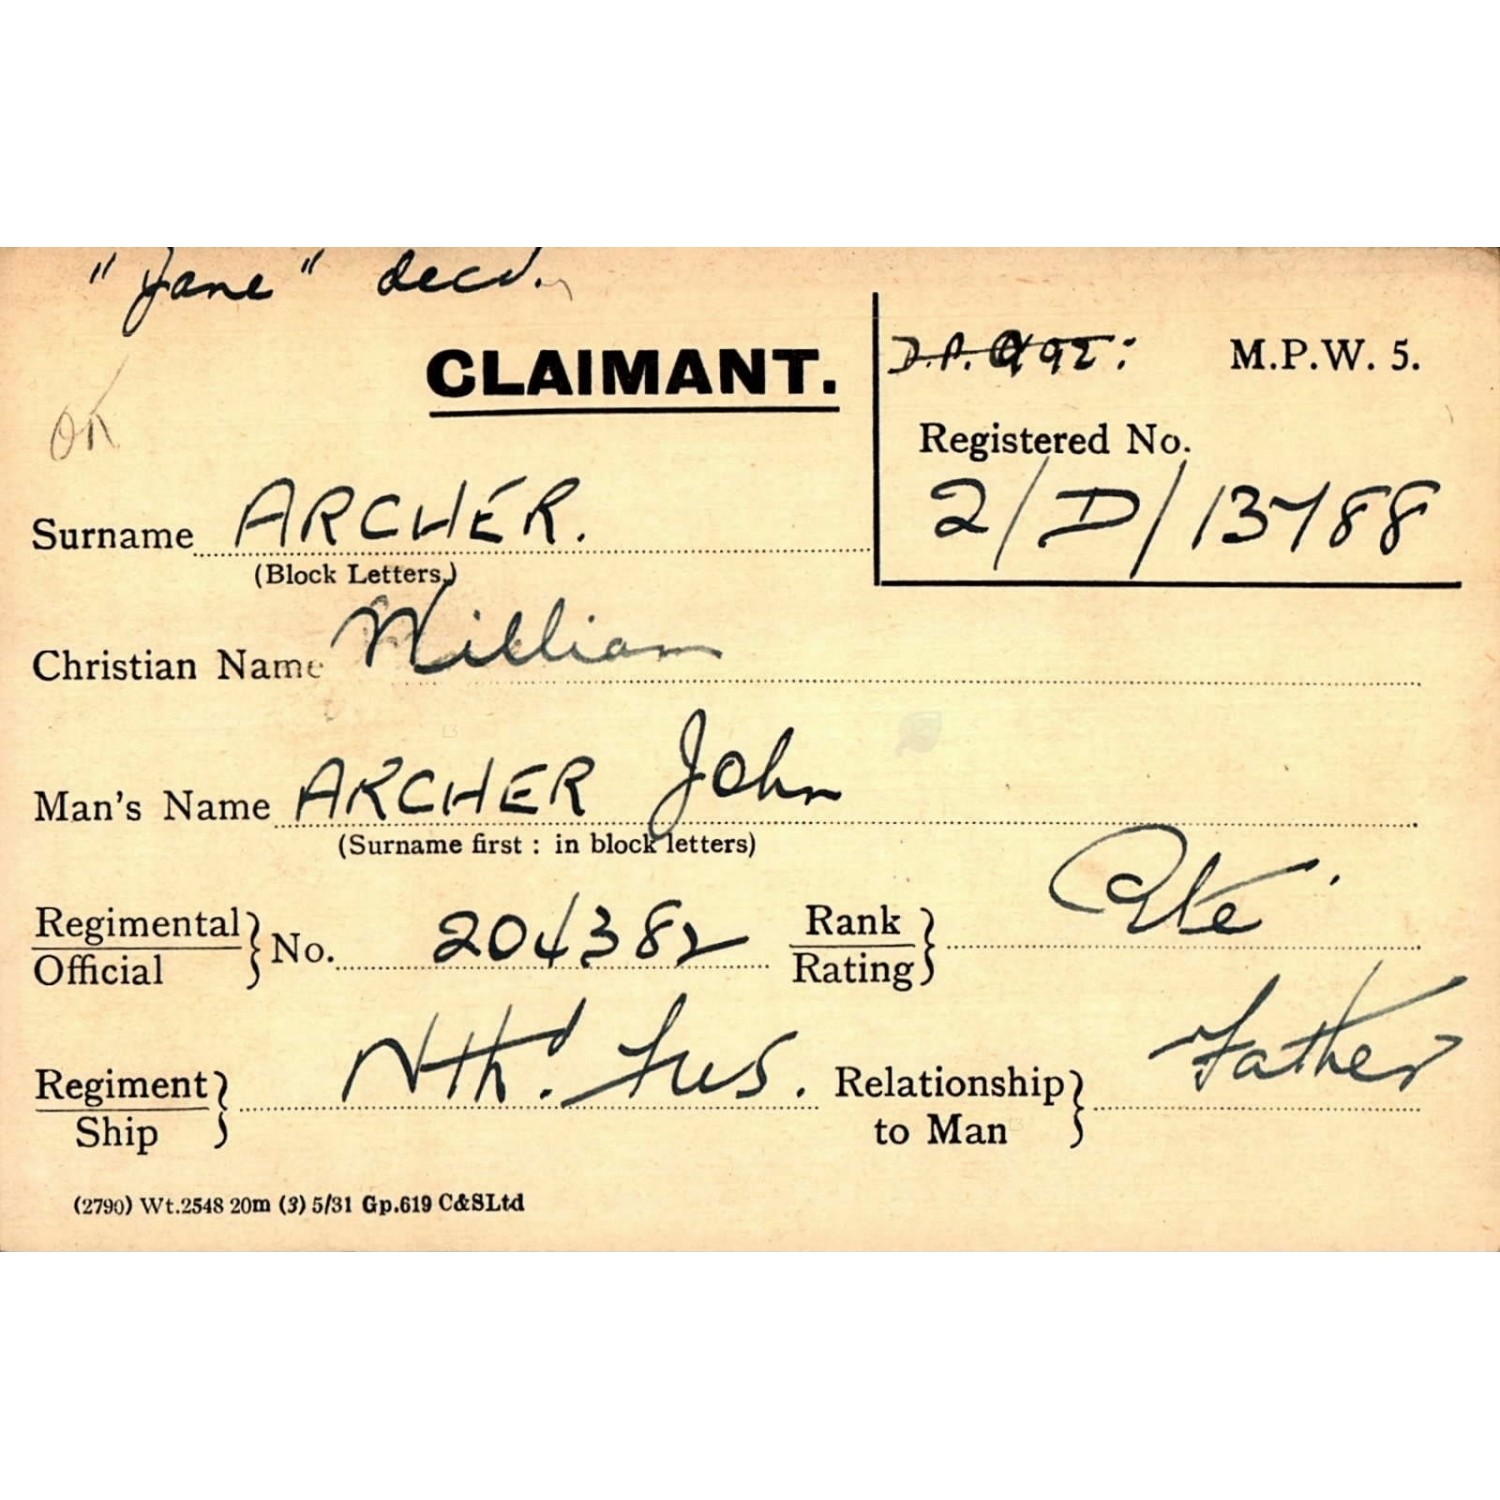 "Jane" decd.
CLAIMANT.
M.P.W. 5.
OK
Registered No.
2/D/13788
Surname ARCHER.
(Block Letters.)
Christian Name William
Man's Name ARCHER John
(Surname first : in block letters)
Regimental/Official No. 204382 Rank/Rating Pte.
Regiment/Ship Nthd. Fus. Relationship to Man Father
(2790) Wt.2548 20m (3) 5/31 Gp.619 C&SLtd